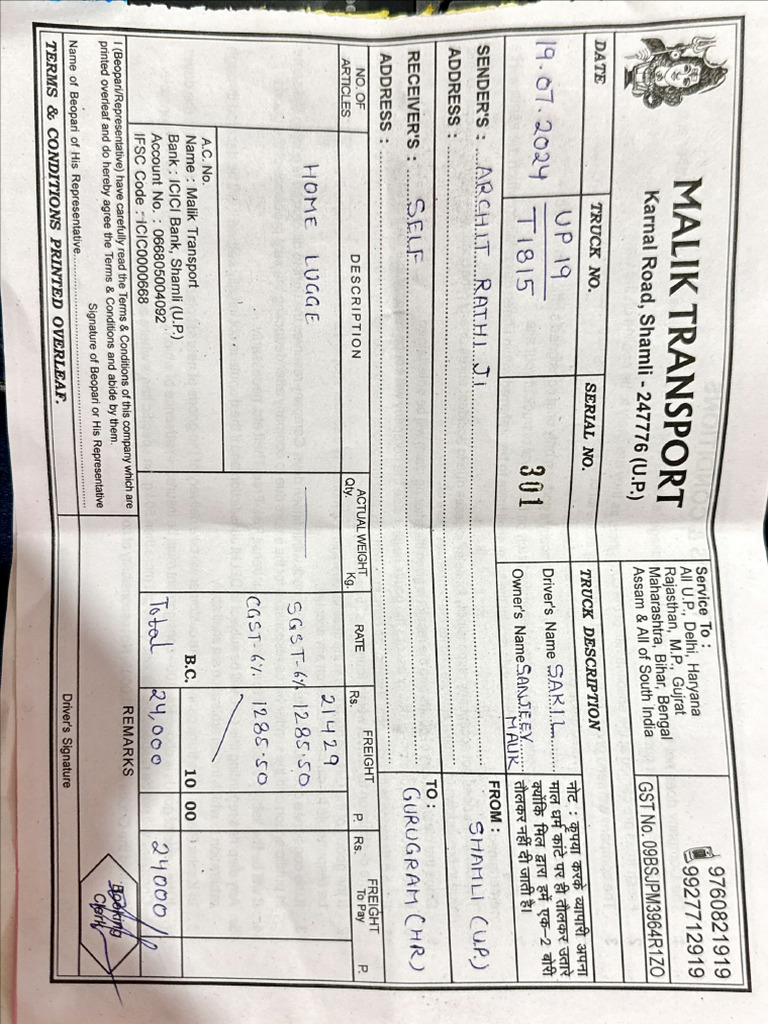 MALIK TRANSPORT
Karnal Road, Shamli - 247776 (U.P.)
Service To :
All U.P., Delhi, Haryana
Rajasthan, M.P., Gujrat
Maharashtra, Bihar, Bengal
Assam & All of South India
9760821919
9927712919
GST No. 09BSJPM3964R1ZO
DATE TRUCK NO. SERIAL NO. TRUCK DESCRIPTION
19.07.2024 UP 19 T 1815 301
Driver's Name SAKIL
Owner's Name SANJEEV MALIK
नोट : कृपया करके व्यापारी अपना
माल धर्म कांटे पर ही तौलकर उतारे
क्योंकि मिल द्वारा हमें एक-2 बोरी
तौलकर नहीं दी जाती है।
SENDER'S : ARCHIT RATHI JI
ADDRESS :
FROM : SHAMLI (U.P.)
RECEIVER'S : SELF
ADDRESS :
TO : GURUGRAM (HR)
NO. OF ARTICLES DESCRIPTION ACTUAL WEIGHT Qty. Kg. RATE FREIGHT Rs. P. FREIGHT To Pay Rs. P.
21429
HOME LUGGE SGST-6% 1285.50
CGST-6% 1285.50
B.C. 10 00
Total 24,000 24000/
A.C. No.
Name : Malik Transport
Bank : ICICI Bank, Shamli (U.P.)
Account No. : 066805004092
IFSC Code : ICIC0000668
I (Beopari/Representative) have carefully read the Terms & Conditions of this company which are
printed overleaf and do hereby agree the Terms & Conditions and abide by them.
Name of Beopari of His Representative
Signature of Beopari or His Representative
REMARKS
Driver's Signature
Booking Clerk
TERMS & CONDITIONS PRINTED OVERLEAF.